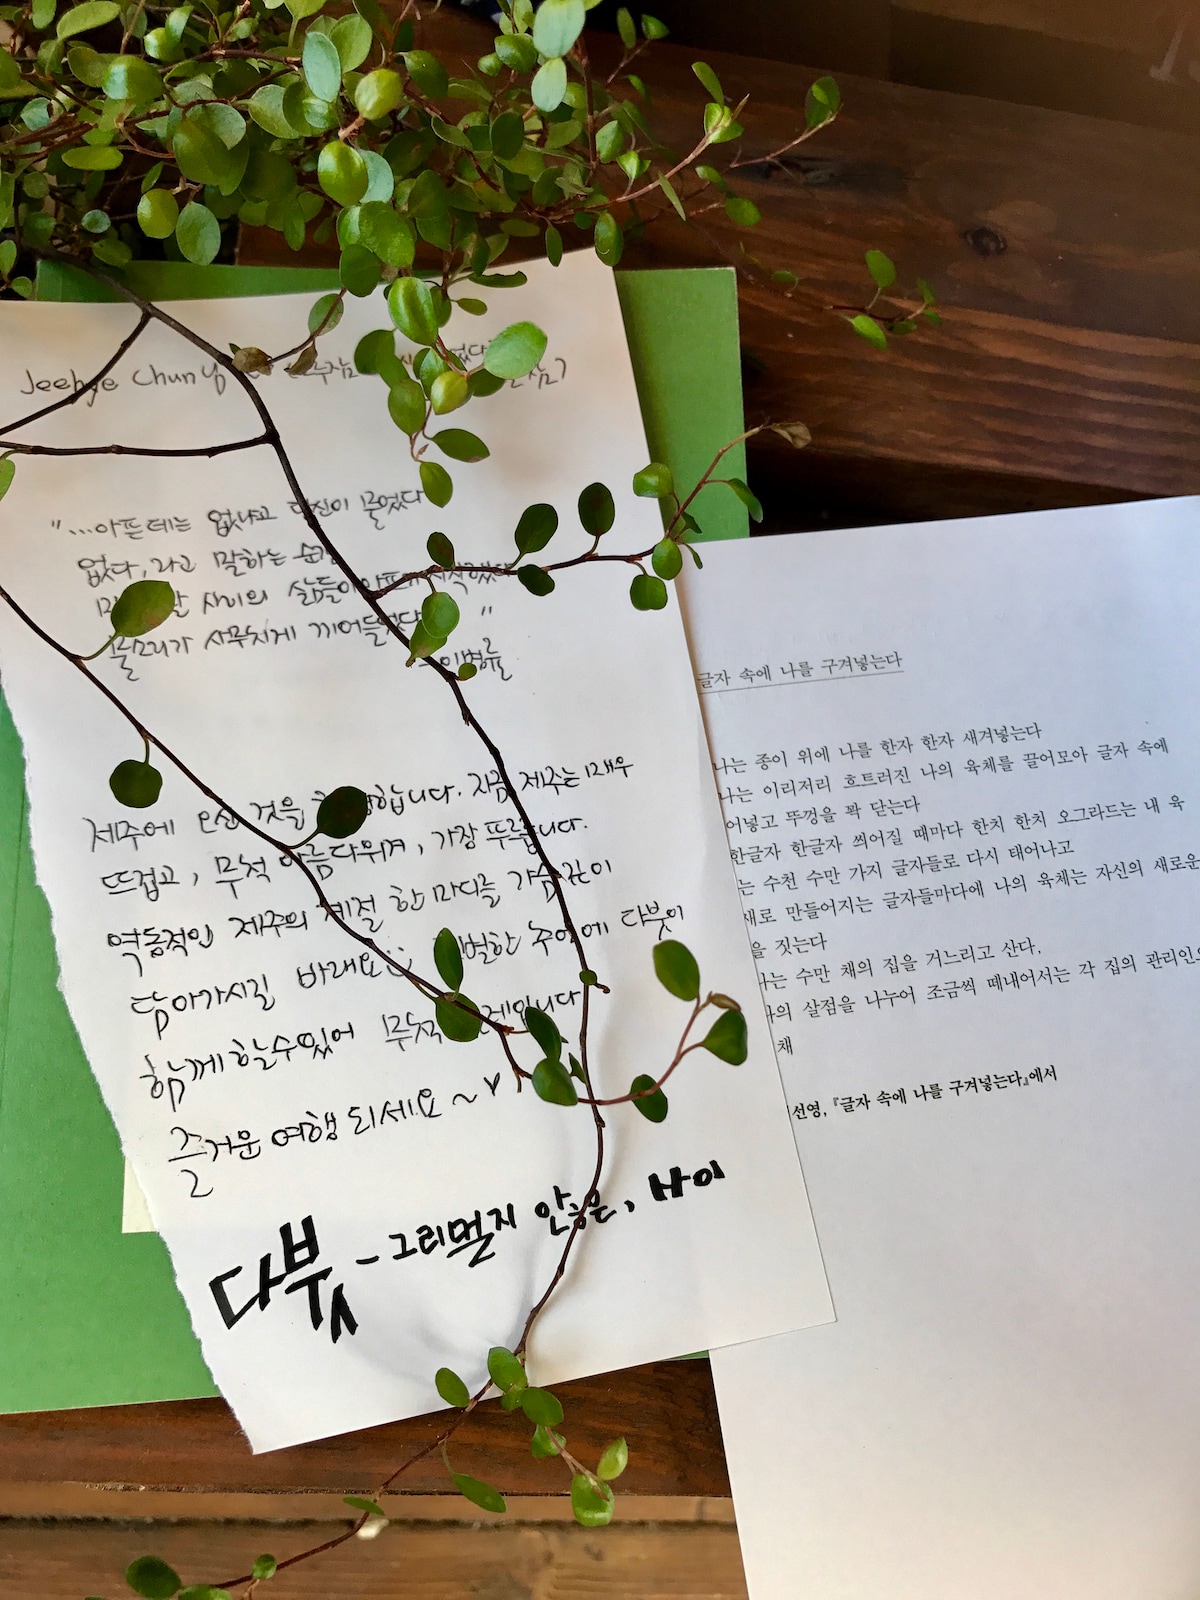 Jeehye Chung
"...아픈데는 없냐고 당신이 물었다
없다, 라고 말하는 순간
말 사이의 삶들이 아프기 시작했다
물소리가 사무치게 끼어들었다 "
- 이병률
제주에 오신 것을 환영합니다. 지금 제주는 매우
뜨겁고, 무척 아름다워져, 가장 뚜릅니다.
역동적인 제주의 계절 한 마디를 가슴 깊이
담아가시길 바래요 특별한 추억에 다붓이
함께 할 수 있어 무척 설레입니다
즐거운 여행 되세요 ~ ♥
다붓 - 그리 멀지 않은, 사이
글자 속에 나를 구겨넣는다
나는 종이 위에 나를 한자 한자 새겨넣는다
나는 이리저리 흐트러진 나의 육체를 끌어모아 글자 속에
어넣고 뚜껑을 꽉 닫는다
한글자 한글자 씌어질 때마다 한치 한치 오그라드는 내 육
는 수천 수만 가지 글자들로 다시 태어나고
새로 만들어지는 글자들마다에 나의 육체는 자신의 새로운
을 짓는다
나는 수만 채의 집을 거느리고 산다,
나의 살점을 나누어 조금씩 떼내어서는 각 집의 관리인으
채
선영, 『글자 속에 나를 구겨넣는다』에서